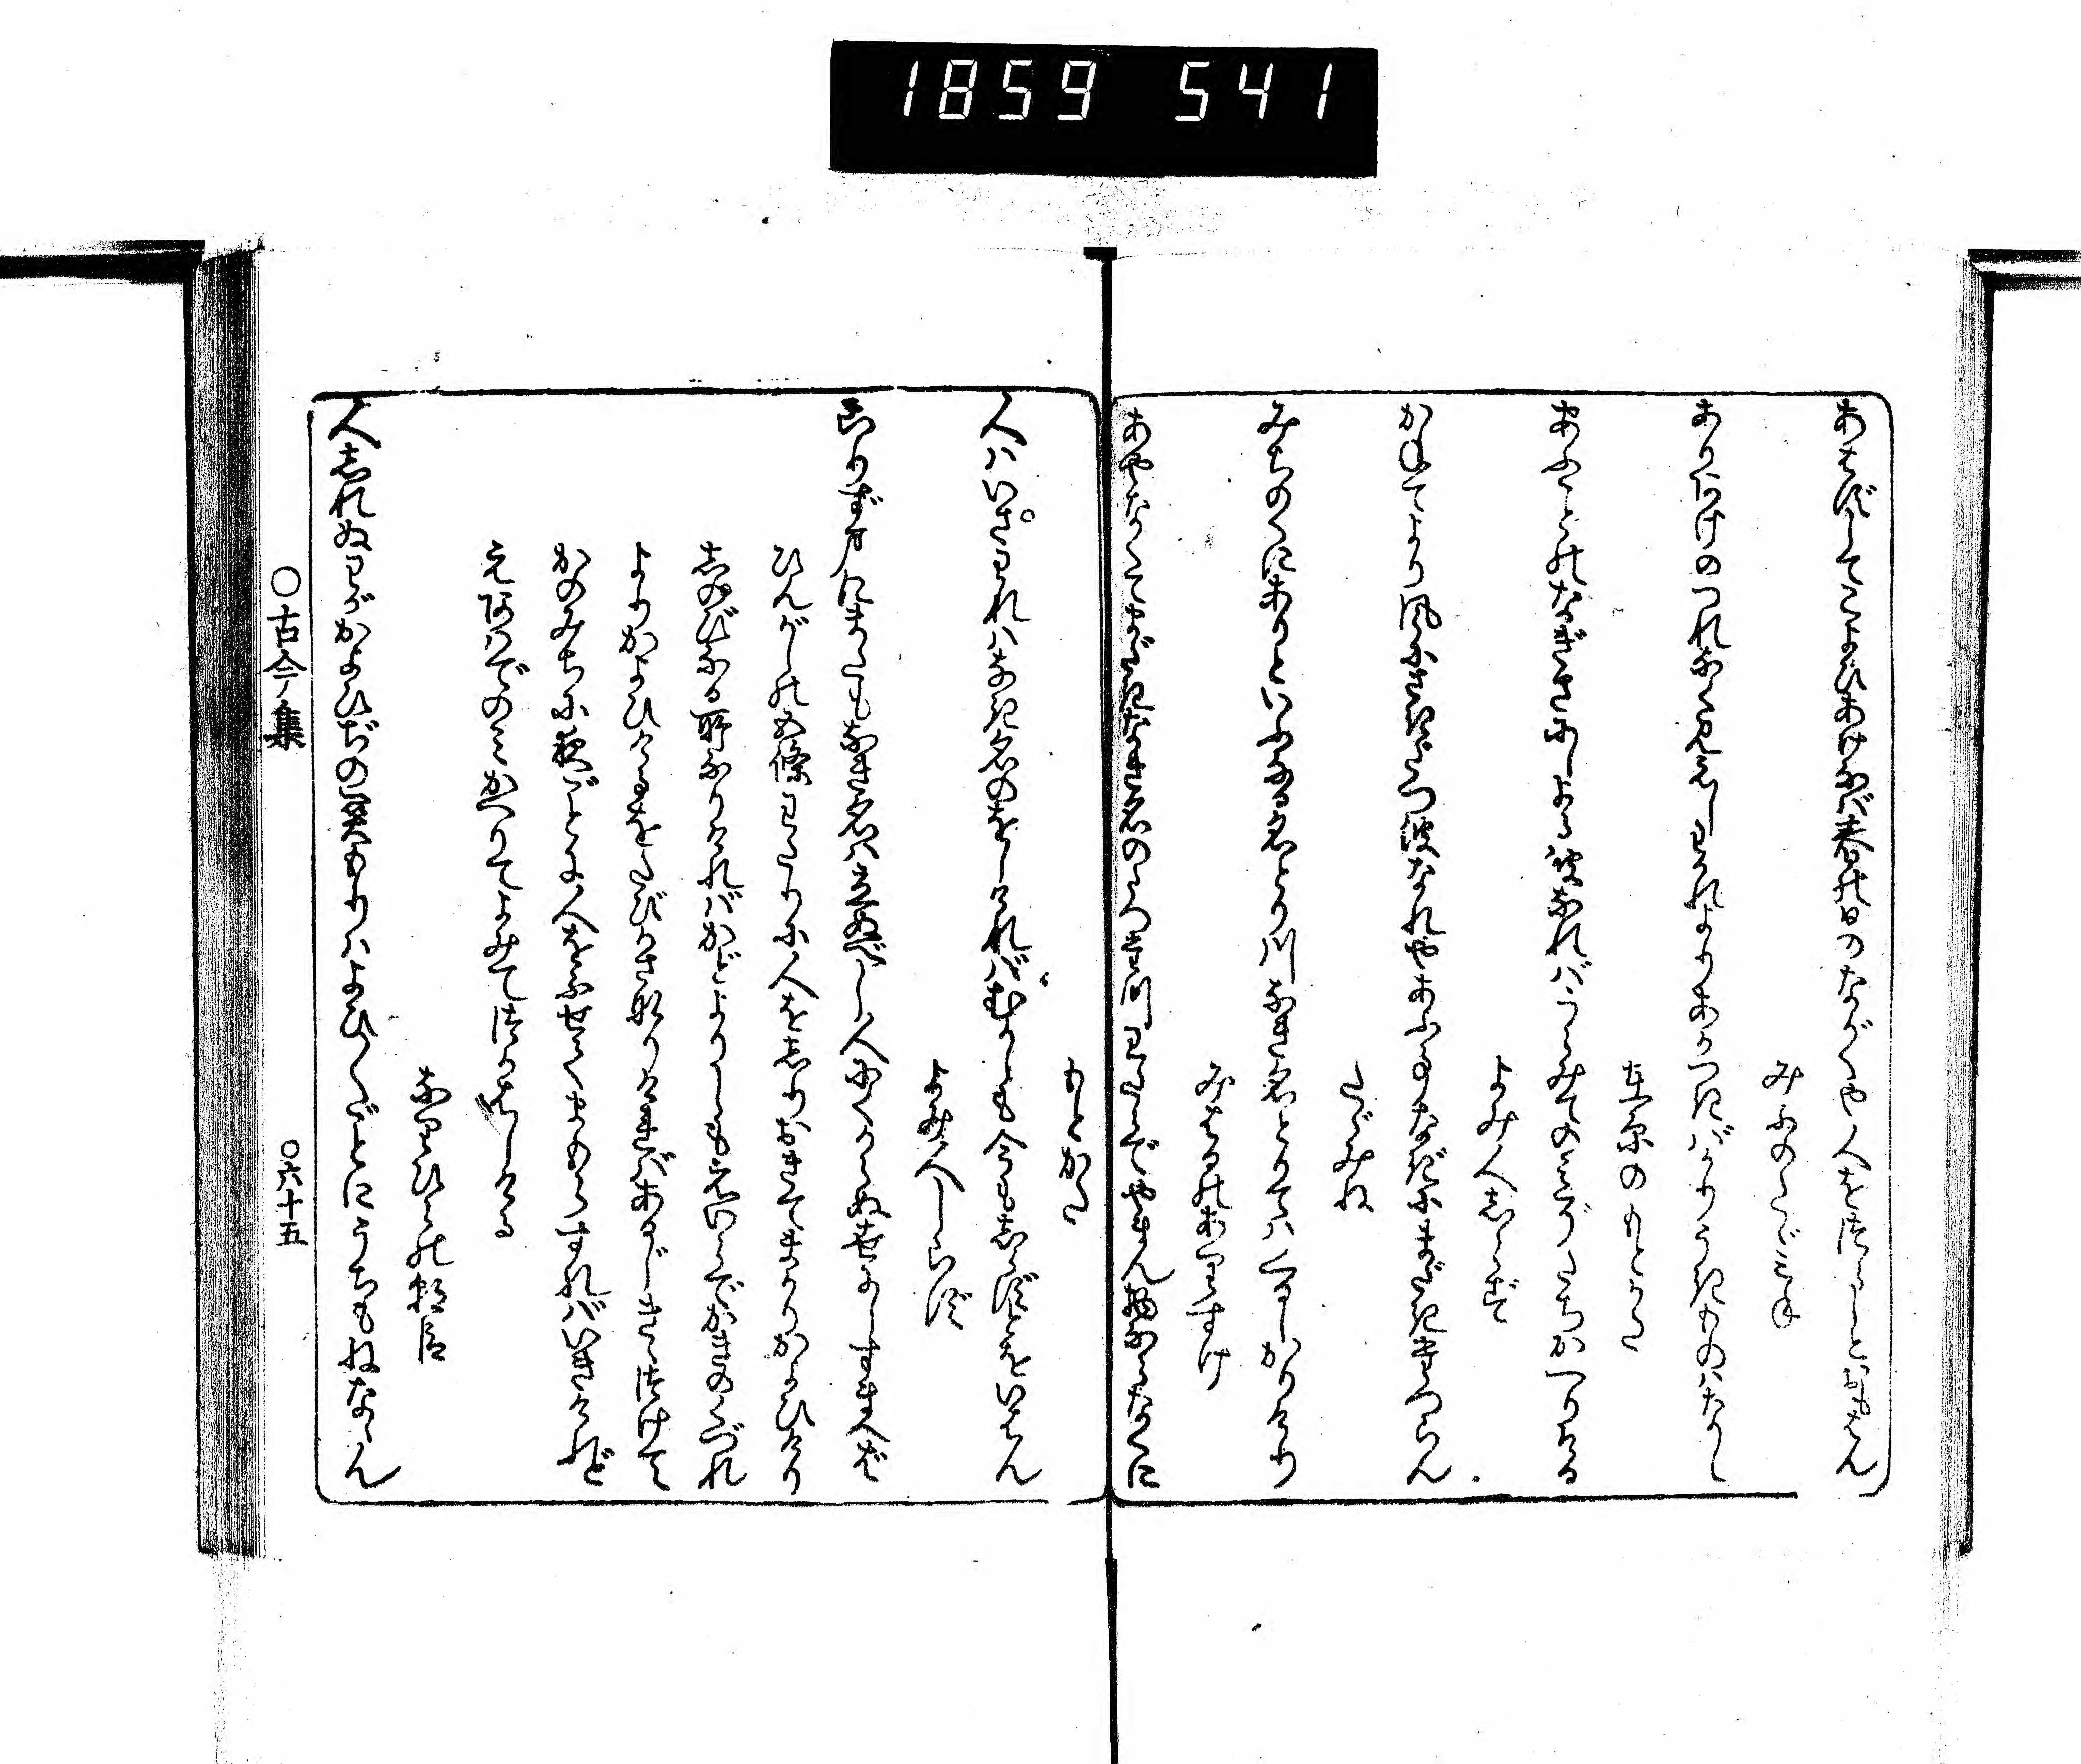 1859 541
あはずしてこよひあけなば春の日のながくや人をつらしとおもはん
みぶのたゞみね
ありあけのつれなく見えしわかれよりあかつきばかりうきものはなし
在原のもとかた
あふことのなぎさにしよる波なればうらみてのみぞたちかへりける
よみ人しらず
かねてより風にさきだつ波なれやあふことなきにまだきたつらん
たゞみね
みちのくにありといふなる名とり川なき名とりてはくるしかりけり
みはるのありすけ
あやなくてまだきなき名のたつた川わたらでやまん物ならなくに
もとかた
人はいさわれはなき名のをしければむかしも今もしらずとをいはん
よみ人しらず
こりずまにまたもなき名は立ぬべし人にくからぬ世にしすまへば
ひんがしの五條わたりに人をしりおきてまかりかよひけり
しのびなる所なりければかどよりしもえいらでかきのくづれ
よりかよひけるをたびかさなりければあるじきゝつけて
かのみちに夜ごとに人をふせてまもらすればいきけれど
えあはでのみかへりてよみてつかはしける
なりひらの朝臣
人しれぬわがかよひぢの関もりはよひ〳〵ごとにうちもねなゝん
○古今集
○六十五